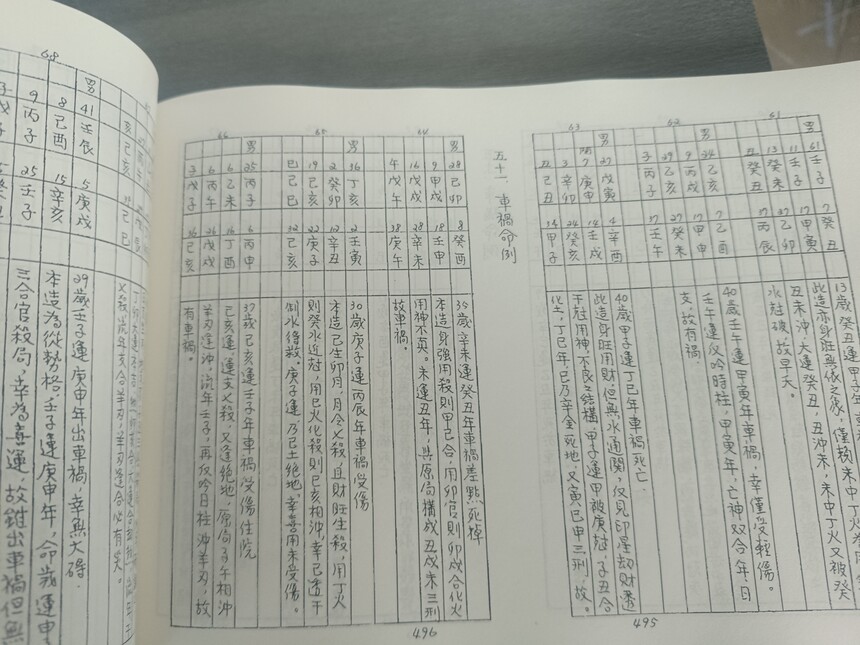 61
男
61 壬子
11 壬子
13 癸未
丑 癸丑
7 癸丑
17 甲寅
27 乙卯
37 丙辰
此造亦身旺無依之家,僅賴未中丁火又被癸
丑未沖,大運癸丑,丑沖未,未中丁火為
水尅破,故早夭。
62
男
24 乙亥
9 丙戌
29 乙亥
子 丙子
7 乙酉
17 甲申
27 癸未
37 壬午
40歲壬午運甲寅年車禍,幸僅受輕傷。
壬午運伏吟時柱,甲寅年,亡神双合年、日
支,故有禍。
63
男
27 戊寅
7 庚申
3 辛卯
丑 己丑
4 辛酉
14 壬戌
24 癸亥
34 甲子
40歲甲子運丁巳年車禍死亡.
此造身旺用財,但無水通關,仅見印星劫財悉
于尅用神不良之結構,甲子運甲被庚尅,子丑合
化土,丁巳年,巳乃辛金死地,又寅巳申三刑,故。
495
五十一、車禍命例
64
男
28 己卯
9 甲戌
16 戊戌
午 戊午
8 癸酉
18 壬申
28 辛未
38 庚午
35歲辛未運癸丑年車禍差點死掉
本造身強用殺則甲己合,用卯官則卯戌合化火
用神不真。未運丑年,與原局構成丑戌未三刑
故車禍。
65
男
36 丁亥
2 癸卯
19 己亥
巳 己巳
2 壬寅
12 辛丑
22 庚子
32 己亥
30歲庚子運丙辰年車禍受傷
本造己生卯月,月令七殺,且財旺生殺,用丁火
則癸水近尅,用巳火化殺則巳亥相沖,幸己透干
制水護殺。庚子運乃己土絕地,幸喜用未受傷。
66
男
25 丙子
6 乙未
6 丙午
子 戊子
6 丙申
16 丁酉
26 戊戌
36 己亥
37歲己亥運壬子年車禍受傷住院
己亥運,運支七殺,又逢絕地,原局子午相沖
羊刃逢沖,流年壬子,再伏吟日柱沖羊刃,故
有車禍。
496
68
男
41 壬辰
8 己酉
9 丙子
5 庚戌
15 辛亥
25 壬子
29歲壬子運庚申年出車禍,幸無大碍.
本造為從勢格,壬子運庚申年,命歲運申
三合官殺局,幸為喜運,故雖出車禍但無